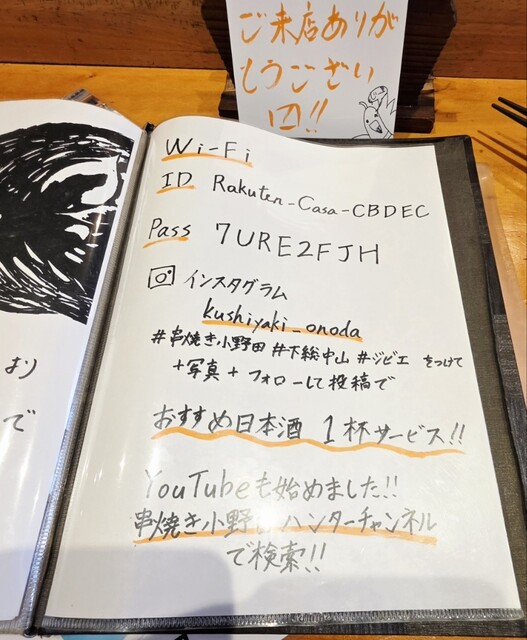 ご来店ありが
とうござい
Wi-Fi
ID Rakuten-Casa-CBDEC
Pass 7URE2FJH
インスタグラム
kushiyaki_onoda
#串焼き小野田 #下総中山 #ジビエ をつけて
+写真+フォローして投稿で
おすすめ日本酒 1杯サービス!!
YouTubeも始めました!!
串焼き小野 ハンターチャンネル
で検索!!
より
で